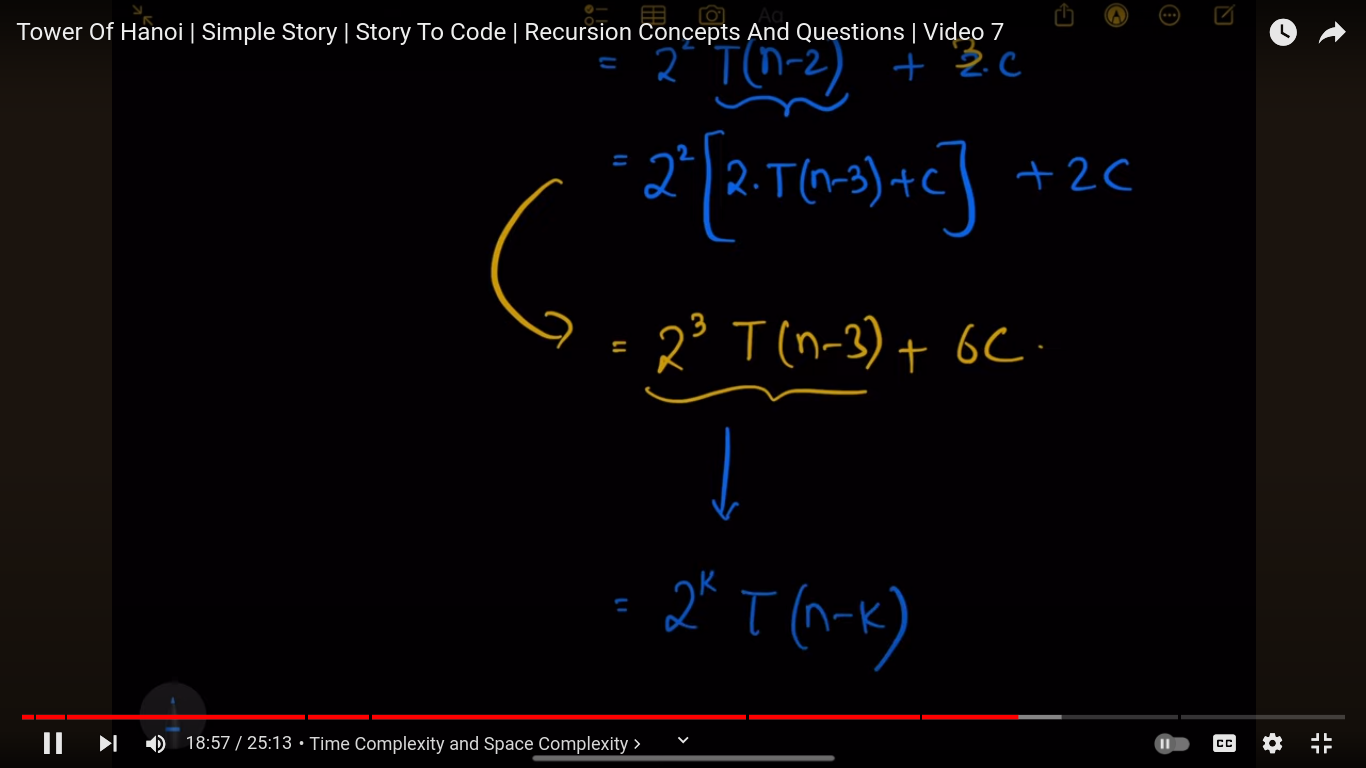 Tower Of Hanoi | Simple Story | Story To Code | Recursion Concepts And Questions | Video 7
Aa
= 2² T(n-2) + 3.C
= 2²[2.T(n-3)+C] + 2C
= 2³ T(n-3) + 6C.
= 2ᴷ T(n-K)
18:57 / 25:13 • Time Complexity and Space Complexity ›
CC